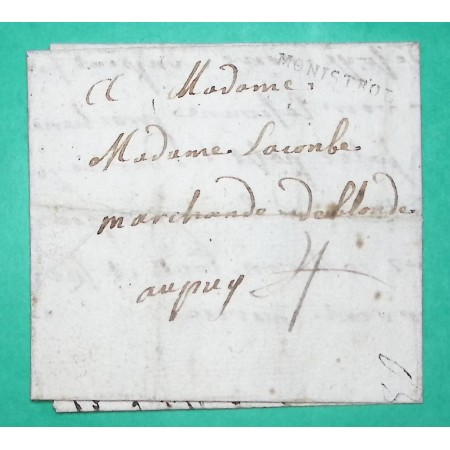 MONISTROL
A Madame
Madame Laconbe
marchande deblonde
aupuy 4